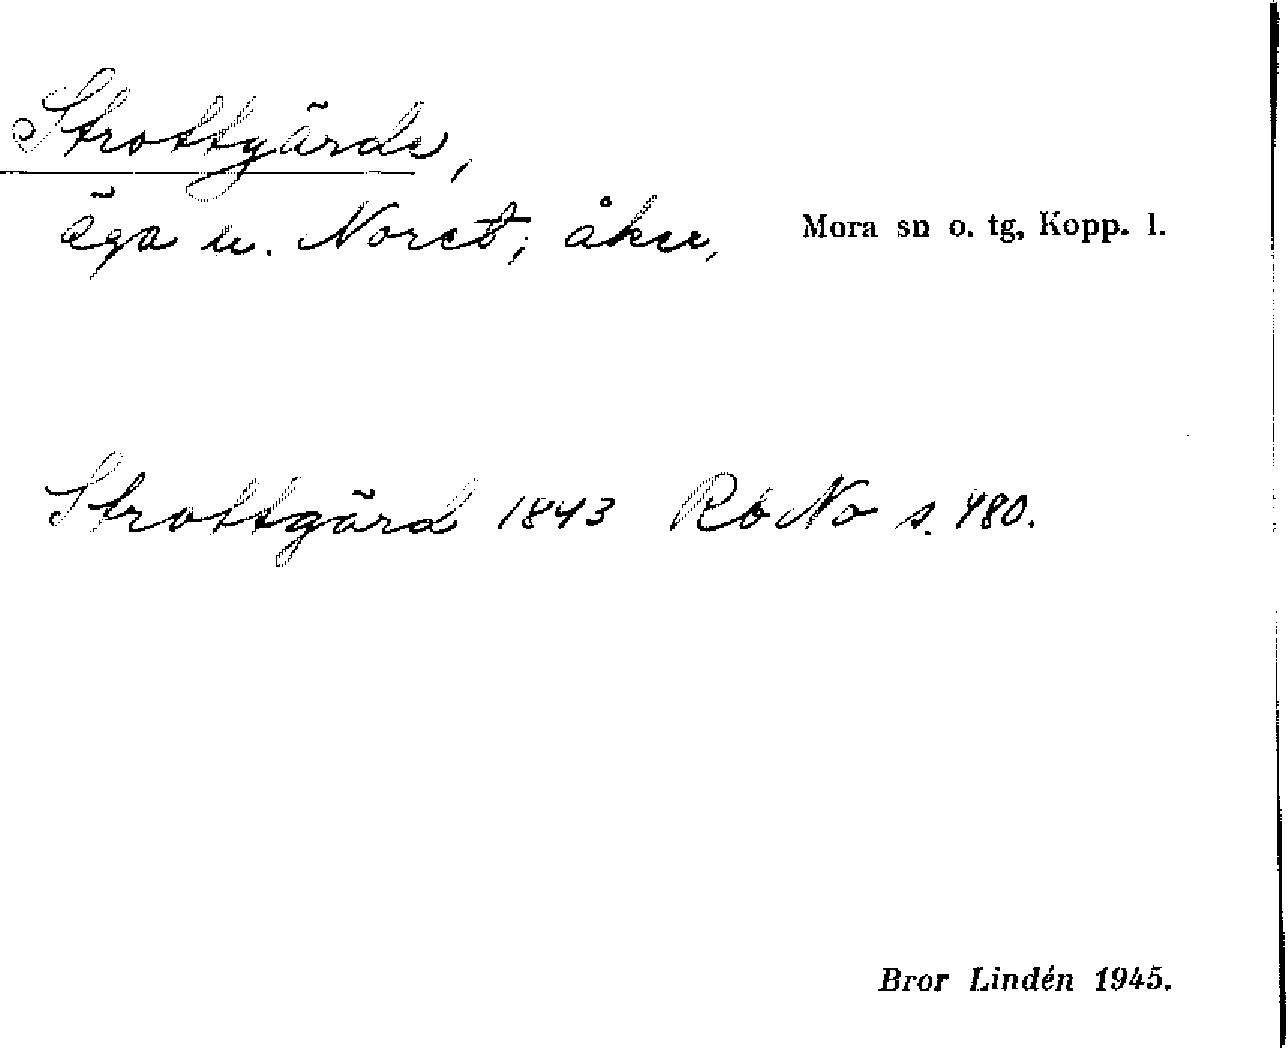 Strottgärde,
äga u. Noret; åker, Mora sn o. tg, Kopp. l.
Strottgärd 1843 RbNo s. 480.
Bror Lindén 1945.